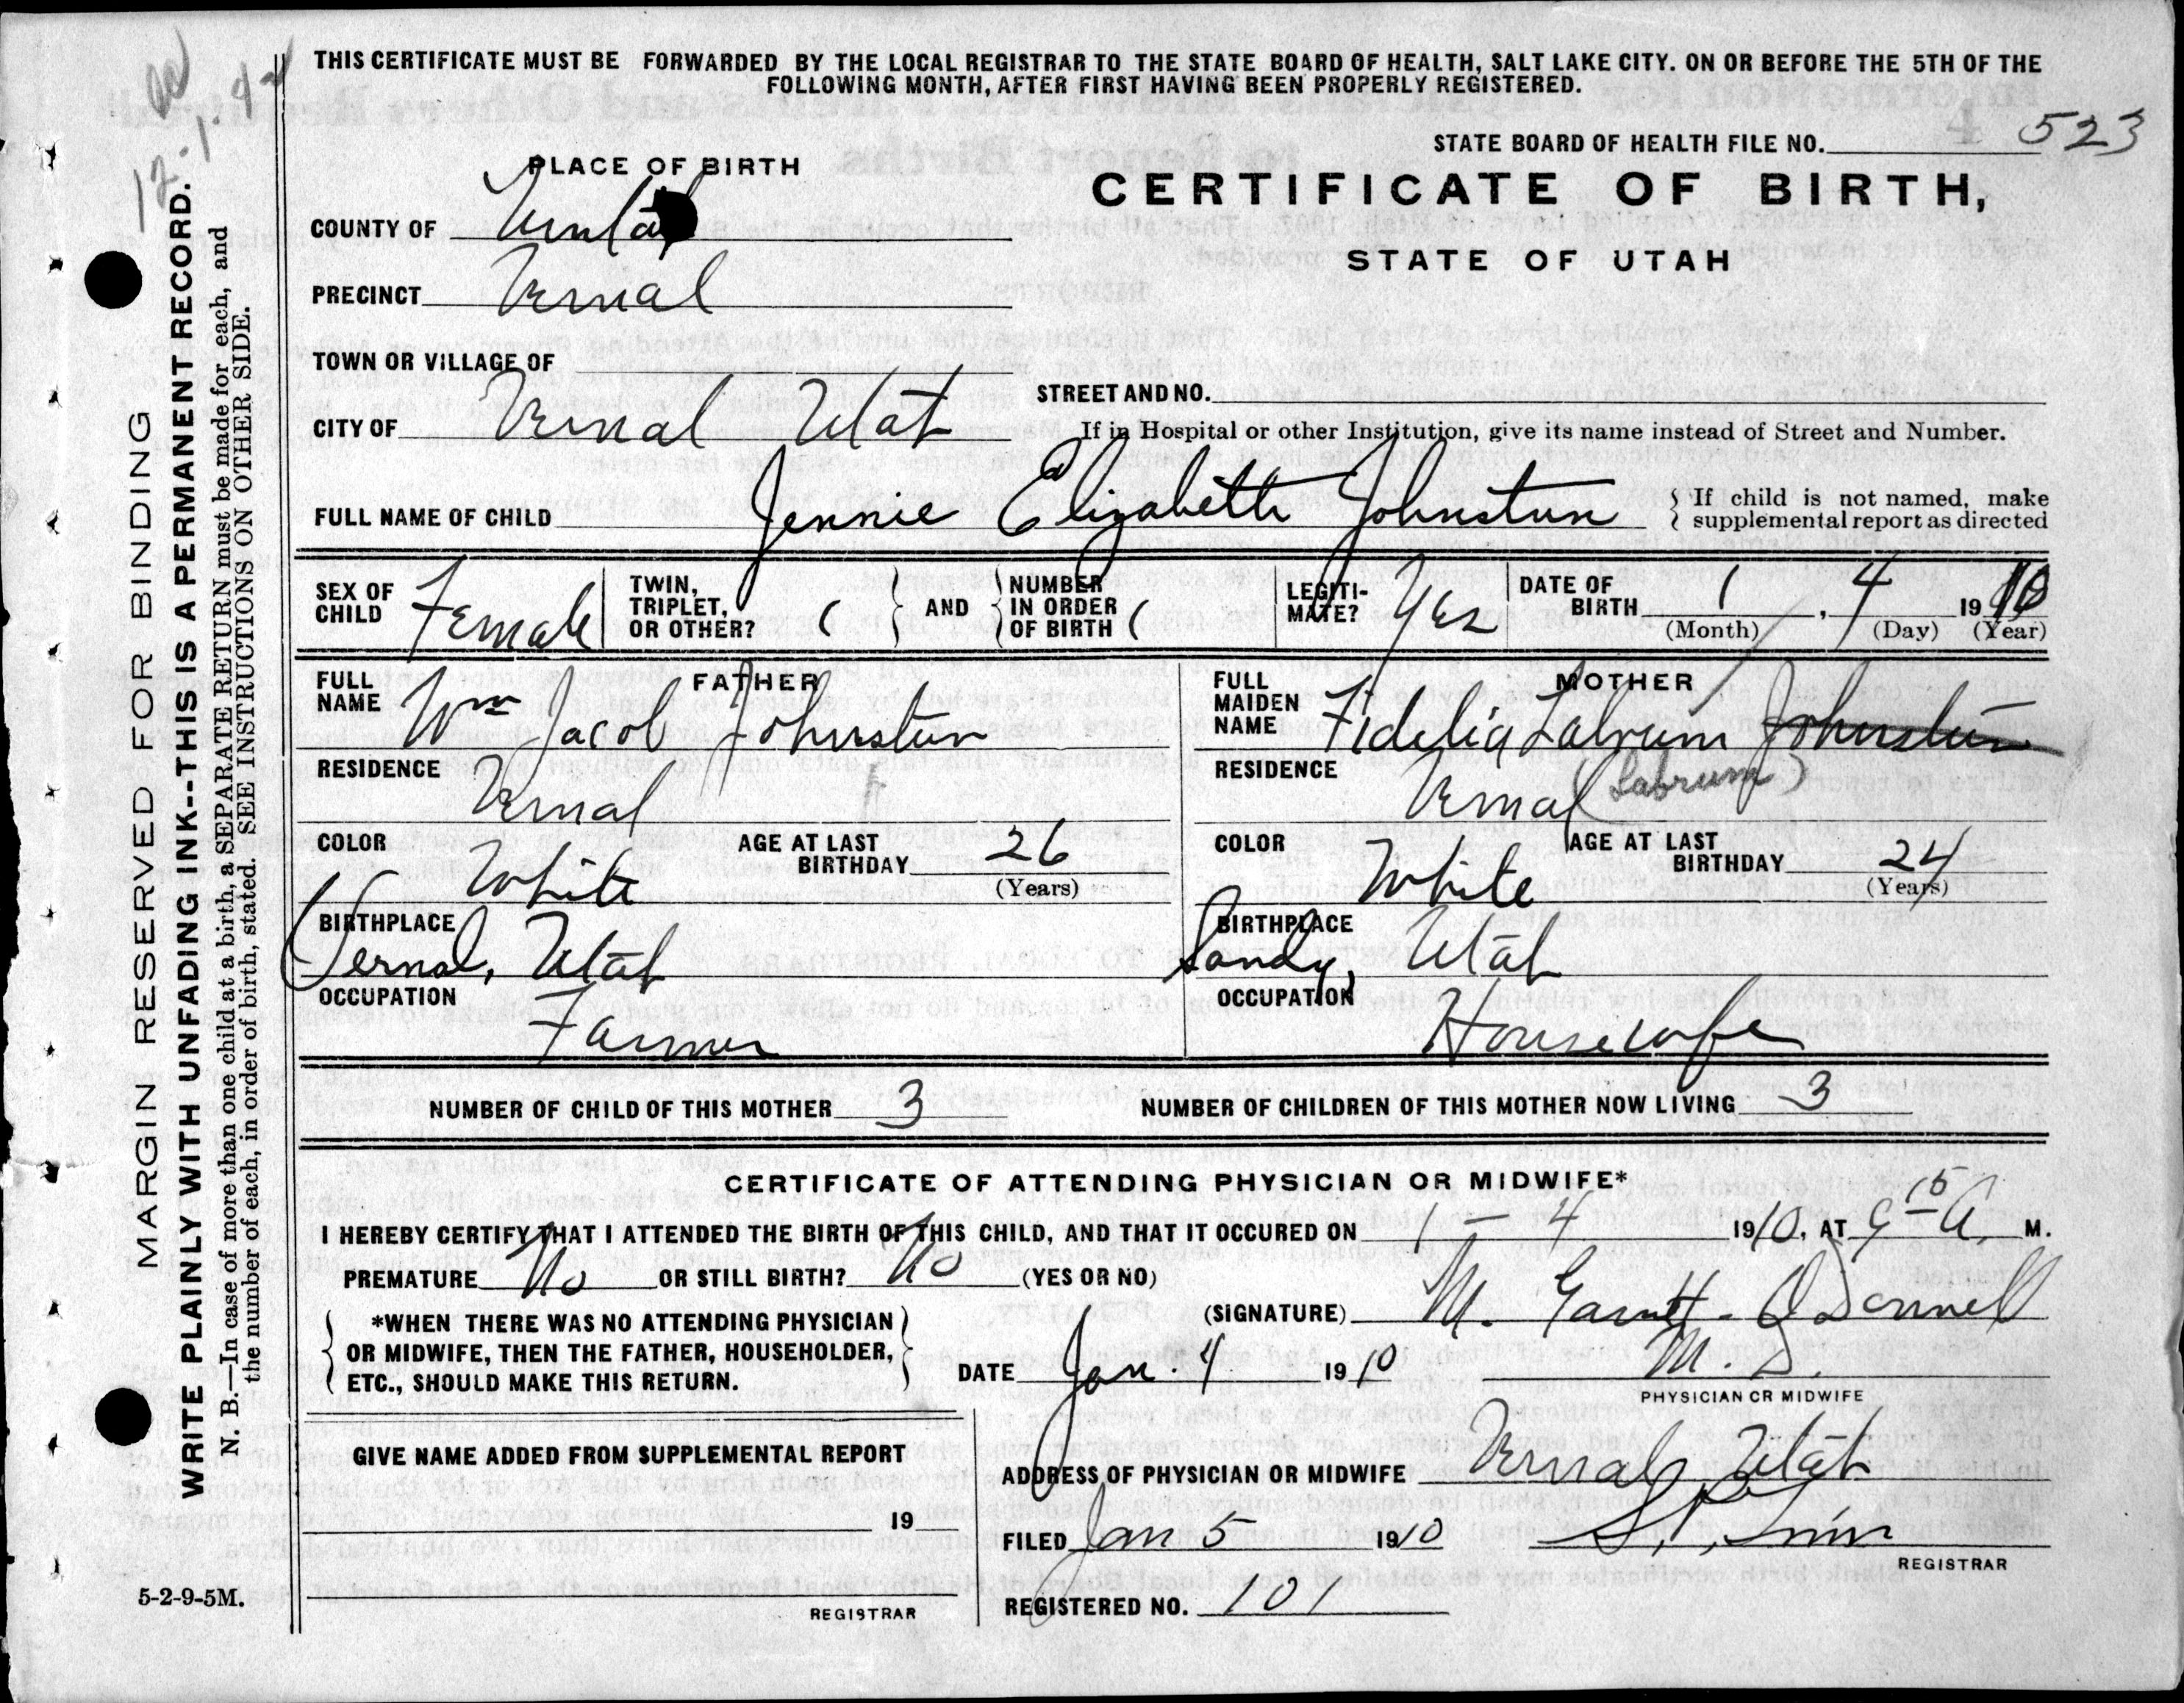 12-1-42
THIS CERTIFICATE MUST BE FORWARDED BY THE LOCAL REGISTRAR TO THE STATE BOARD OF HEALTH, SALT LAKE CITY. ON OR BEFORE THE 5TH OF THE
FOLLOWING MONTH, AFTER FIRST HAVING BEEN PROPERLY REGISTERED.
STATE BOARD OF HEALTH FILE NO. 523
PLACE OF BIRTH
CERTIFICATE OF BIRTH,
STATE OF UTAH
COUNTY OF Uintah
PRECINCT Vernal
TOWN OR VILLAGE OF
STREET AND NO.
CITY OF Vernal Utah
If in Hospital or other Institution, give its name instead of Street and Number.
FULL NAME OF CHILD Jennie Elizabeth Johnstun
If child is not named, make
supplemental report as directed
SEX OF CHILD Female
TWIN, TRIPLET, OR OTHER? 1
AND
NUMBER IN ORDER OF BIRTH 1
LEGITIMATE? Yes
DATE OF BIRTH 1, 4 1910
(Month) (Day) (Year)
FATHER
FULL NAME Wm Jacob Johnstun
RESIDENCE Vernal
COLOR White
AGE AT LAST BIRTHDAY 26
(Years)
BIRTHPLACE
Vernal, Utah
OCCUPATION
Farmer
MOTHER
FULL MAIDEN NAME Fidelia Labrum Johnstun
RESIDENCE Vernal (Labrum)
COLOR White
AGE AT LAST BIRTHDAY 24
(Years)
BIRTHPLACE
Sandy, Utah
OCCUPATION
Housewife
NUMBER OF CHILD OF THIS MOTHER 3
NUMBER OF CHILDREN OF THIS MOTHER NOW LIVING 3
CERTIFICATE OF ATTENDING PHYSICIAN OR MIDWIFE*
I HEREBY CERTIFY THAT I ATTENDED THE BIRTH OF THIS CHILD, AND THAT IT OCCURED ON 1 - 4 1910, AT 9 15 A. M.
PREMATURE No OR STILL BIRTH? No (YES OR NO)
*WHEN THERE WAS NO ATTENDING PHYSICIAN
OR MIDWIFE, THEN THE FATHER, HOUSEHOLDER,
ETC., SHOULD MAKE THIS RETURN.
(SIGNATURE) M. Garnett-O'Donnell
M. D.
PHYSICIAN OR MIDWIFE
DATE Jan. 4 1910
GIVE NAME ADDED FROM SUPPLEMENTAL REPORT
19
REGISTRAR
ADDRESS OF PHYSICIAN OR MIDWIFE Vernal, Utah
FILED Jan 5 1910
REGISTRAR
REGISTERED NO. 101
5-2-9-5M.
MARGIN RESERVED FOR BINDING
WRITE PLAINLY WITH UNFADING INK--THIS IS A PERMANENT RECORD.
N. B.—In case of more than one child at a birth, a SEPARATE RETURN must be made for each, and
the number of each, in order of birth, stated. SEE INSTRUCTIONS ON OTHER SIDE.